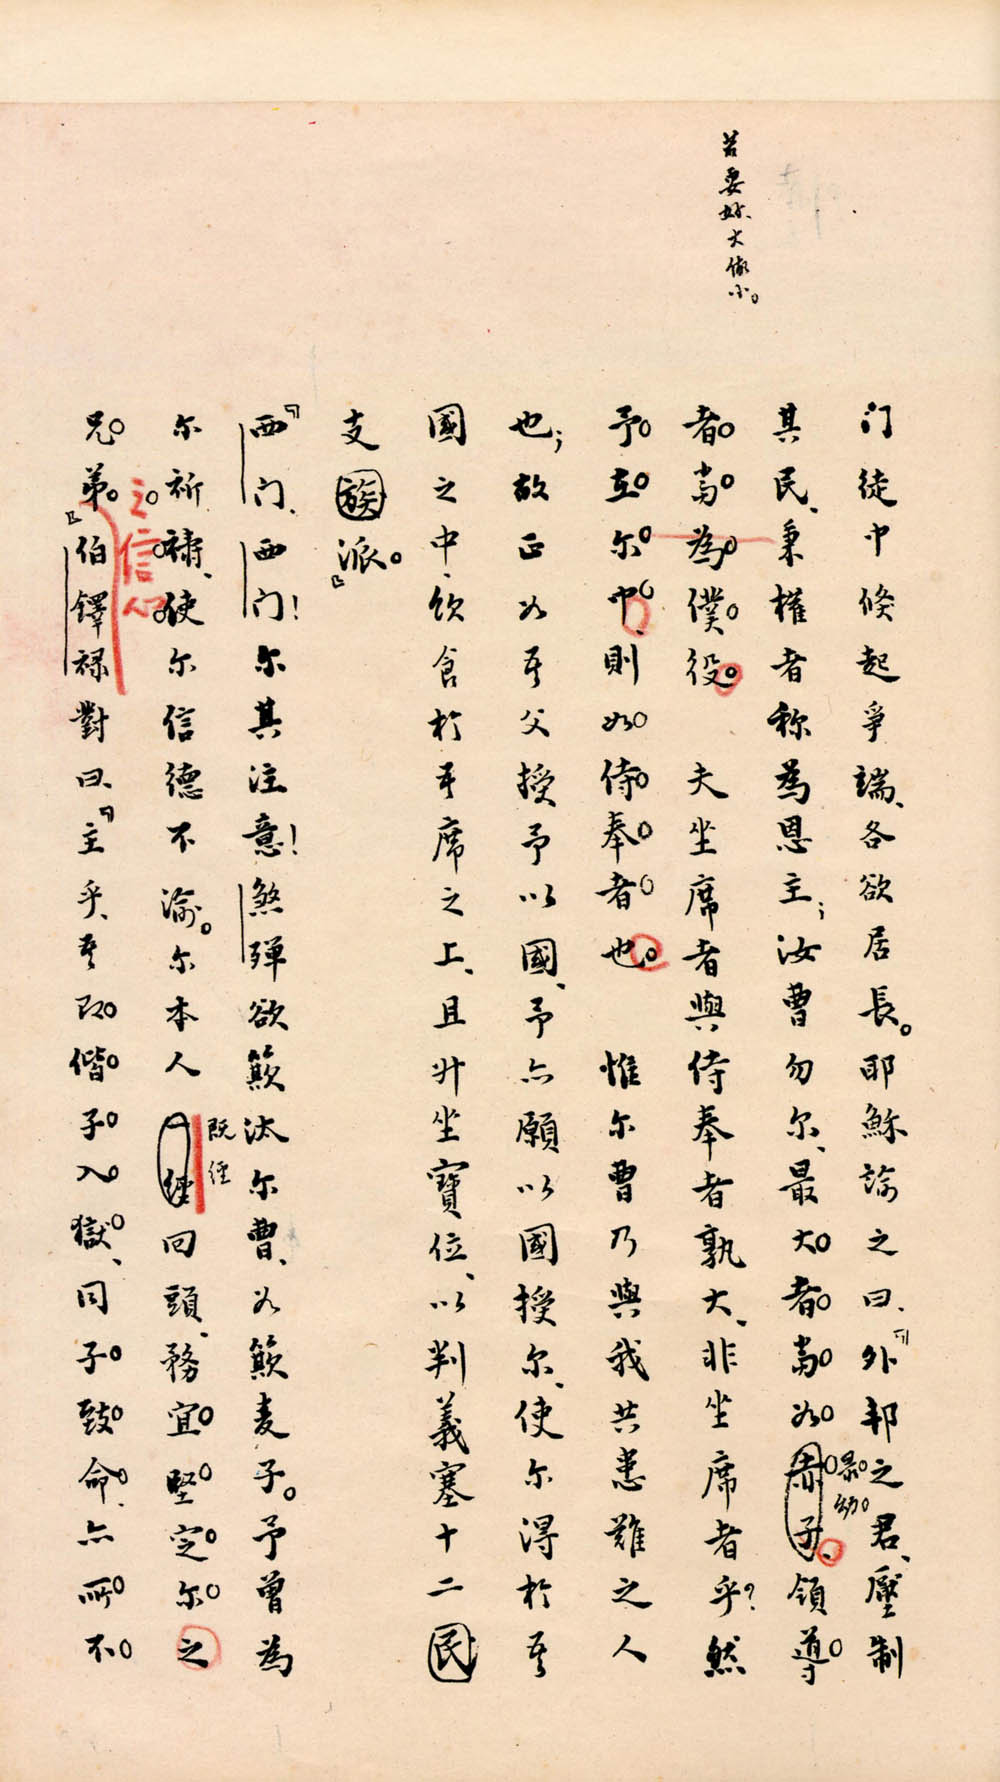 若要好大做小。
门徒中倐起爭端、各欲居長。耶穌諭之曰、『外邦之君、壓制
其民、秉權者称為恩主；汝曹勿尔、最大者當如赤子、領導
最幼
者當為僕役。夫坐席者與侍奉者孰大、非坐席者乎？然
予在尔中、則如侍奉者也。惟尔曹乃與我共患難之人
也；故正如吾父授予以國、予亦願以國授尔、使尔得於吾
國之中、飲食於吾席之上、且升坐寶位、以判義塞十二民
支族派。』
『西门、西门！尔其注意！煞殫欲簸汰尔曹、如簸麦子。予曾為
既經
尔祈禱、使尔信德不渝。尔本人經回頭、務宜堅定尔之
之信心
兄弟。』伯鐸祿對曰、『主乎、吾即偕子入獄、同子致命、亦所不